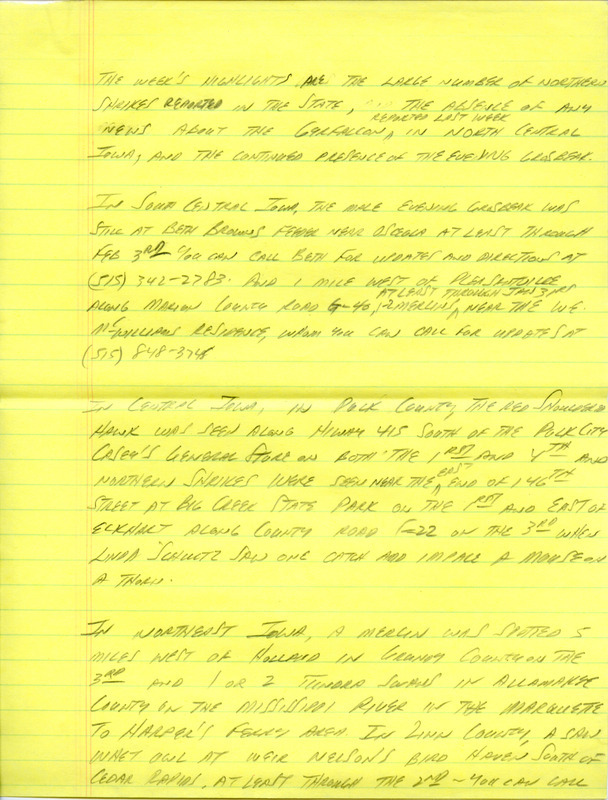 THE WEEK'S HIGHLIGHTS ARE THE LARGE NUMBER OF NORTHERN
SHRIKES REPORTED IN THE STATE, THE ABSENCE OF ANY
NEWS ABOUT THE GYRFALCON, REPORTED LAST WEEK IN NORTH CENTRAL
IOWA, AND THE CONTINUED PRESENCE OF THE EVENING GROSBEAK.
IN SOUTH CENTRAL IOWA, THE MALE EVENING GROSBEAK WAS
STILL AT BETH BROWNS FEEDER NEAR OSCEOLA AT LEAST THROUGH
FEB 3RD YOU CAN CALL BETH FOR UPDATES AND DIRECTIONS AT
(515) 342-2783. AND 1 MILE WEST OF PLEASANTVILLE
ALONG MARION COUNTY ROAD G-40, 1-2 MERLINS, AT LEAST THROUGH JAN 31 NEAR THE
MCWILLIAMS RESIDENCE, WHOM YOU CAN CALL FOR UPDATES AT
(515) 848-
IN CENTRAL IOWA, IN POLK COUNTY, THE RED SHOULDERED
HAWK WAS SEEN ALONG HIWAY 415 SOUTH OF THE POLK CITY
CASEY'S GENERAL STORE ON BOTH THE 1RST AND 4TH AND
NORTHERN SHRIKES WERE SEEN NEAR THE EAST END OF 146TH
STREET AT BIG CREEK STATE PARK ON THE 1RST AND EAST OF
ELKHART ALONG COUNTY ROAD F-22 ON THE 3RD WHEN
LINDA SCHULTZ SAW ONE CATCH AND IMPALE A MOUSE ON
A THORN.
IN NORTHEAST IOWA, A MERLIN WAS SPOTTED 5
MILES WEST OF HOLLAND IN GRUNDY COUNTY ON THE
3RD AND 1 OR 2 TUNDRA SWANS IN ALLAMAKEE
COUNTY ON THE MISSISSIPPI RIVER IN THE MARQUETTE
TO HARPER'S FERRY AREA. IN LINN COUNTY, A SAW
WHET OWL AT WEIR NELSON'S BIRD HAVEN SOUTH OF
CEDAR RAPIDS, AT LEAST THROUGH THE 2ND - YOU CAN CALL